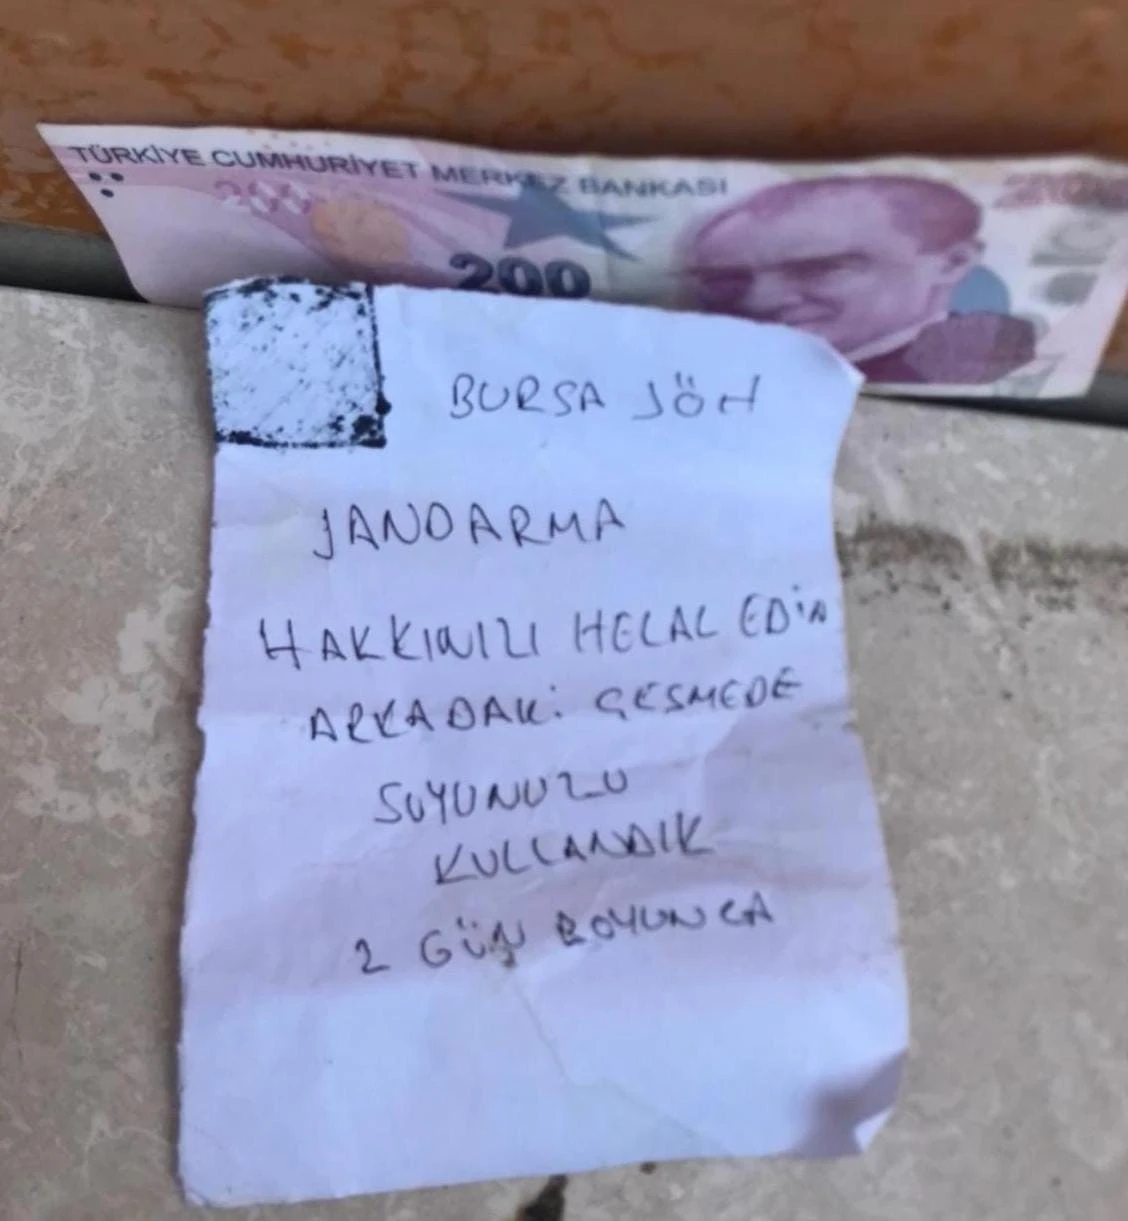 TÜRKİYE CUMHURİYET MERKEZ BANKASI
200
200
200
BURSA JÖH
JANDARMA
HAKKINIZI HELAL EDİN
ARKADAKİ ÇESMEDE
SUYUNUZU
KULLANDIK
2 GÜN BOYUNCA